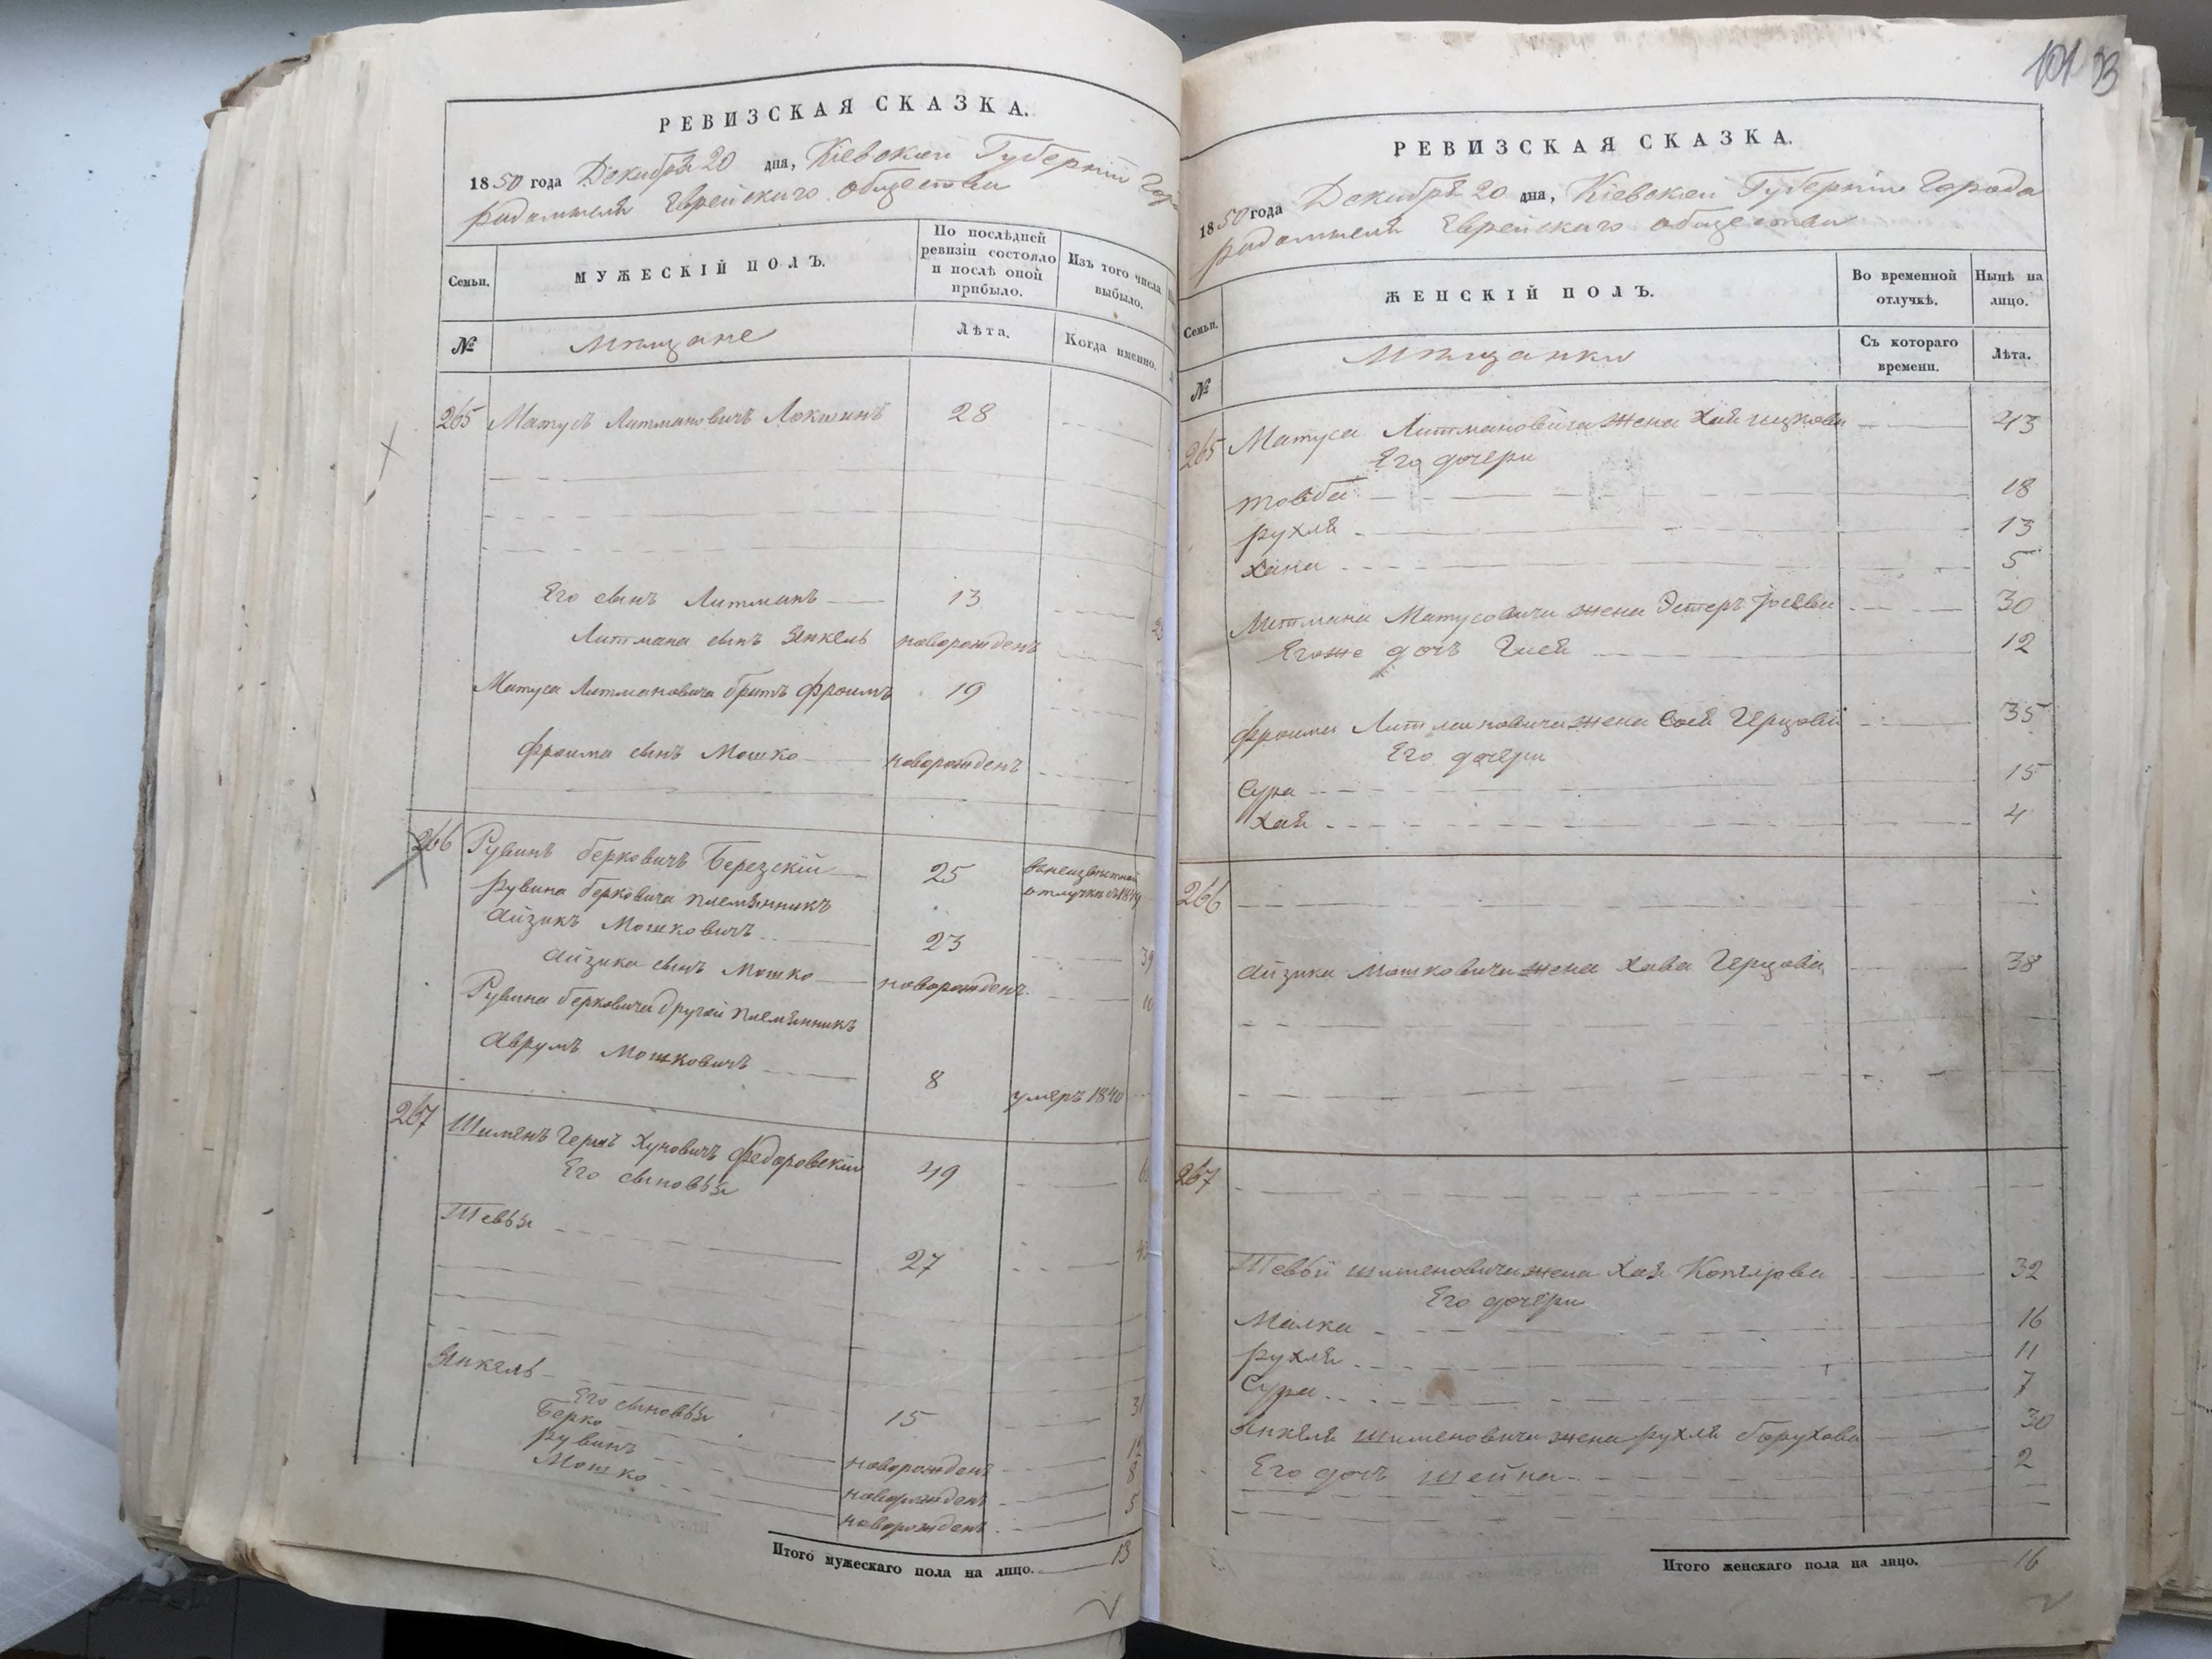 РЕВИЗСКАЯ СКАЗКА.
1850 года Декабря 20 дня, Кіевской Губерніи
Радомысля Еврейскаго общества
Семьи.
МУЖЕСКІЙ ПОЛЪ.
По послѣдней ревизіи состояло и послѣ оной прибыло.
Изъ того числа выбыло.
№
Мѣщане
Лѣта.
Когда именно.
265 Матусъ Литмановичъ Локшинъ 28
Его сынъ Литманъ 13
Литмана сынъ Янкель новорожденъ
Матуса Литмановича братъ Фроимъ 19
Фроима сынъ Мошко новорожденъ
266 Рувинъ Берковичъ Березскій 25 въ неизвѣстной
отлучкѣ съ
Рувина Берковича племянникъ
Айзикъ Мошковичъ 23 39
Айзика сынъ Мошко новорожденъ 10
Рувина Берковича другой племянникъ
Аврумъ Мошковичъ 8 умеръ 1840
267 Шименъ Герш Хуновичъ Федоровскій 49
Его сыновья
Шевья 27
Янкель 15
Его сыновья
Берко новорожденъ
Рувинъ новорожденъ 8
Мошко новорожденъ 5
Итого мужескаго пола на лицо. 13
101 93
РЕВИЗСКАЯ СКАЗКА.
1850 года Декабря 20 дня, Кіевской Губерніи Города
Радомысля Еврейскаго общества
Семьи.
ЖЕНСКІЙ ПОЛЪ.
Во временной отлучкѣ.
Нынѣ на лицо.
№
Мѣщанки
Съ котораго времени.
Лѣта.
265 Матуса Литмановича жена Хая Ицкова 43
Его дочери
Товба 18
Рухля 13
Хана 5
Литмана Матусовича жена Эстеръ 30
Егоже дочь 12
Фроима Литмановича жена Сося Герцова 35
Его дочери
Сура 15
Хая 4
266
Айзика Мошковича жена Хава Герцова 38
267
Шевьи Шименовича жена Хая 32
Его дочери
Малка 16
Рухля 11
Сура 7
Янкеля Шименовича жена Рухля Борухова 30
Его дочь Шейна 2
Итого женскаго пола на лицо. 16